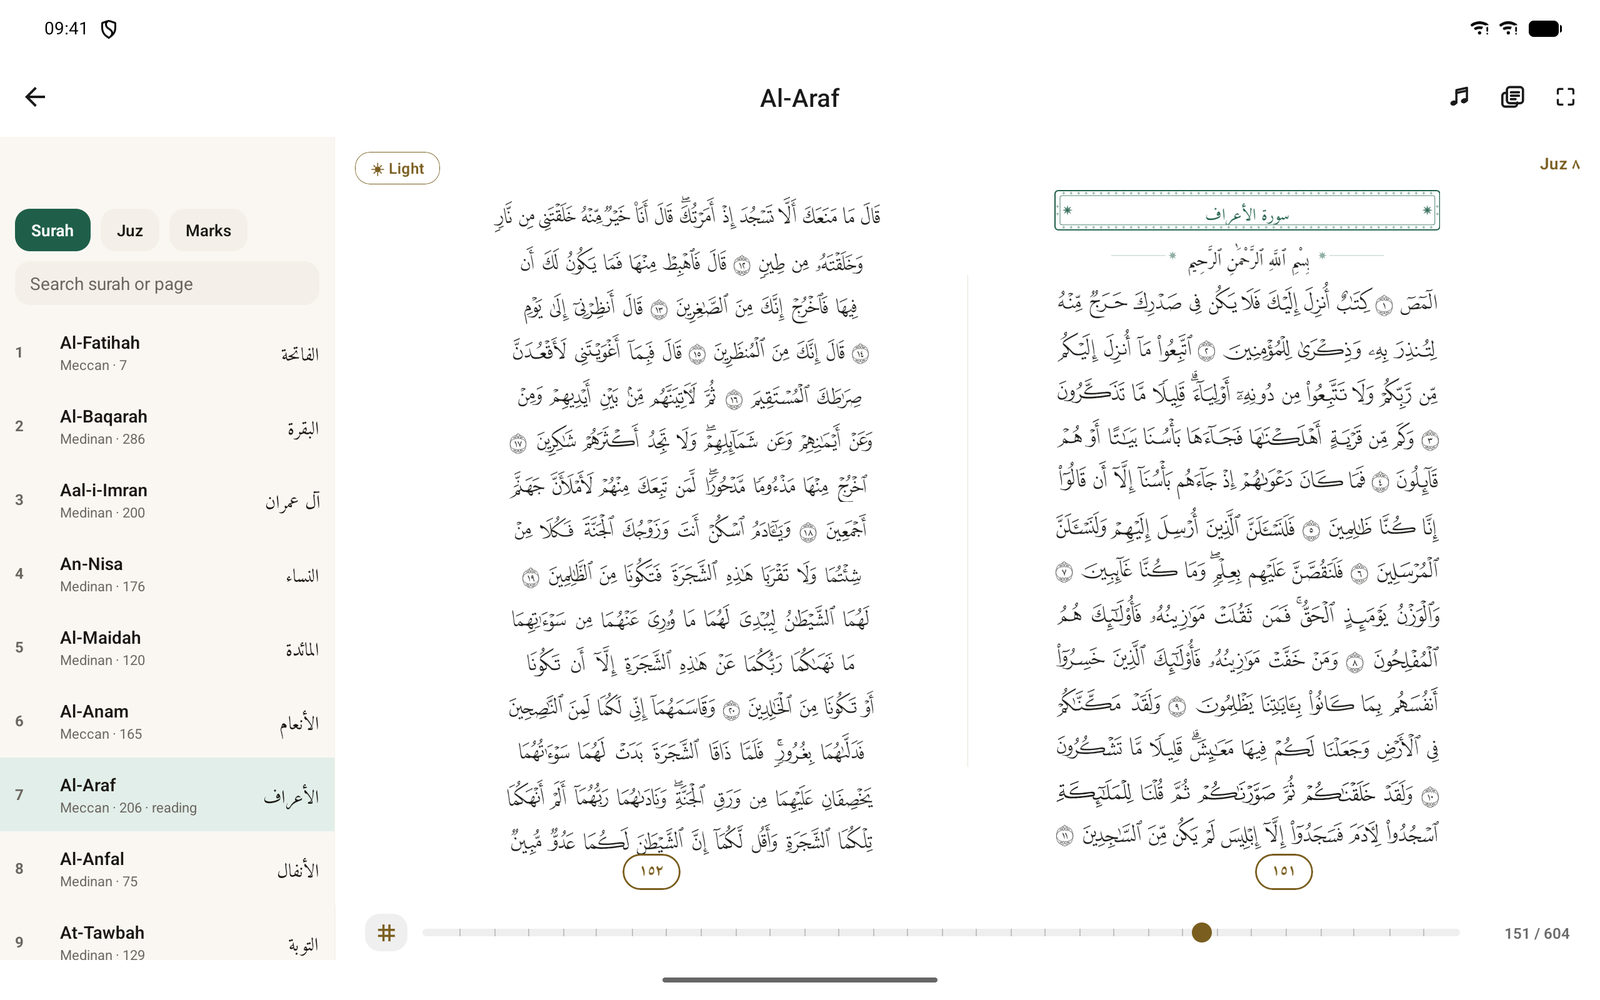 09:41
Al-Araf
Surah
Juz
Marks
Search surah or page
1
Al-Fatihah
Meccan · 7
الفاتحة
2
Al-Baqarah
Medinan · 286
البقرة
3
Aal-i-Imran
Medinan · 200
آل عمران
4
An-Nisa
Medinan · 176
النساء
5
Al-Maidah
Medinan · 120
المائدة
6
Al-Anam
Meccan · 165
الأنعام
7
Al-Araf
Meccan · 206 · reading
الأعراف
8
Al-Anfal
Medinan · 75
الأنفال
9
At-Tawbah
Medinan · 129
التوبة
Light
Juz ∧
سورة الأعراف
بِسْمِ ٱللَّهِ ٱلرَّحْمَٰنِ ٱلرَّحِيمِ
الٓمٓصٓ ١ كِتَٰبٌ أُنزِلَ إِلَيْكَ فَلَا يَكُن فِى صَدْرِكَ حَرَجٌ مِّنْهُ
لِتُنذِرَ بِهِۦ وَذِكْرَىٰ لِلْمُؤْمِنِينَ ٢ ٱتَّبِعُوا۟ مَآ أُنزِلَ إِلَيْكُم
مِّن رَّبِّكُمْ وَلَا تَتَّبِعُوا۟ مِن دُونِهِۦٓ أَوْلِيَآءَ ۗ قَلِيلًا مَّا تَذَكَّرُونَ
٣ وَكَم مِّن قَرْيَةٍ أَهْلَكْنَٰهَا فَجَآءَهَا بَأْسُنَا بَيَٰتًا أَوْ هُمْ
قَآئِلُونَ ٤ فَمَا كَانَ دَعْوَىٰهُمْ إِذْ جَآءَهُم بَأْسُنَآ إِلَّآ أَن قَالُوٓا۟
إِنَّا كُنَّا ظَٰلِمِينَ ٥ فَلَنَسْـَٔلَنَّ ٱلَّذِينَ أُرْسِلَ إِلَيْهِمْ وَلَنَسْـَٔلَنَّ
ٱلْمُرْسَلِينَ ٦ فَلَنَقُصَّنَّ عَلَيْهِم بِعِلْمٍ ۖ وَمَا كُنَّا غَآئِبِينَ ٧
وَٱلْوَزْنُ يَوْمَئِذٍ ٱلْحَقُّ ۚ فَمَن ثَقُلَتْ مَوَٰزِينُهُۥ فَأُو۟لَٰٓئِكَ هُمُ
ٱلْمُفْلِحُونَ ٨ وَمَنْ خَفَّتْ مَوَٰزِينُهُۥ فَأُو۟لَٰٓئِكَ ٱلَّذِينَ خَسِرُوٓا۟
أَنفُسَهُم بِمَا كَانُوا۟ بِـَٔايَٰتِنَا يَظْلِمُونَ ٩ وَلَقَدْ مَكَّنَّٰكُمْ
فِى ٱلْأَرْضِ وَجَعَلْنَا لَكُمْ فِيهَا مَعَٰيِشَ ۗ قَلِيلًا مَّا تَشْكُرُونَ
١٠ وَلَقَدْ خَلَقْنَٰكُمْ ثُمَّ صَوَّرْنَٰكُمْ ثُمَّ قُلْنَا لِلْمَلَٰٓئِكَةِ
ٱسْجُدُوا۟ لِـَٔادَمَ فَسَجَدُوٓا۟ إِلَّآ إِبْلِيسَ لَمْ يَكُن مِّنَ ٱلسَّٰجِدِينَ ١١
١٥١
قَالَ مَا مَنَعَكَ أَلَّا تَسْجُدَ إِذْ أَمَرْتُكَ ۖ قَالَ أَنَا۠ خَيْرٌ مِّنْهُ خَلَقْتَنِى مِن نَّارٍ
وَخَلَقْتَهُۥ مِن طِينٍ ١٢ قَالَ فَٱهْبِطْ مِنْهَا فَمَا يَكُونُ لَكَ أَن
فِيهَا فَٱخْرُجْ إِنَّكَ مِنَ ٱلصَّٰغِرِينَ ١٣ قَالَ أَنظِرْنِىٓ إِلَىٰ يَوْمِ
١٤ قَالَ إِنَّكَ مِنَ ٱلْمُنظَرِينَ ١٥ قَالَ فَبِمَآ أَغْوَيْتَنِى لَأَقْعُدَنَّ
صِرَٰطَكَ ٱلْمُسْتَقِيمَ ١٦ ثُمَّ لَـَٔاتِيَنَّهُم مِّنۢ بَيْنِ أَيْدِيهِمْ وَمِنْ
وَعَنْ أَيْمَٰنِهِمْ وَعَن شَمَآئِلِهِمْ ۖ وَلَا تَجِدُ أَكْثَرَهُمْ شَٰكِرِينَ ١٧
ٱخْرُجْ مِنْهَا مَذْءُومًا مَّدْحُورًا ۖ لَّمَن تَبِعَكَ مِنْهُمْ لَأَمْلَأَنَّ جَهَنَّمَ
أَجْمَعِينَ ١٨ وَيَٰٓـَٔادَمُ ٱسْكُنْ أَنتَ وَزَوْجُكَ ٱلْجَنَّةَ فَكُلَا مِنْ
شِئْتُمَا وَلَا تَقْرَبَا هَٰذِهِ ٱلشَّجَرَةَ فَتَكُونَا مِنَ ٱلظَّٰلِمِينَ ١٩
لَهُمَا ٱلشَّيْطَٰنُ لِيُبْدِىَ لَهُمَا مَا وُۥرِىَ عَنْهُمَا مِن سَوْءَٰتِهِمَا
مَا نَهَىٰكُمَا رَبُّكُمَا عَنْ هَٰذِهِ ٱلشَّجَرَةِ إِلَّآ أَن تَكُونَا
أَوْ تَكُونَا مِنَ ٱلْخَٰلِدِينَ ٢٠ وَقَاسَمَهُمَآ إِنِّى لَكُمَا لَمِنَ ٱلنَّٰصِحِينَ
فَدَلَّىٰهُمَا بِغُرُورٍ ۚ فَلَمَّا ذَاقَا ٱلشَّجَرَةَ بَدَتْ لَهُمَا سَوْءَٰتُهُمَا
يَخْصِفَانِ عَلَيْهِمَا مِن وَرَقِ ٱلْجَنَّةِ ۖ وَنَادَىٰهُمَا رَبُّهُمَآ أَلَمْ أَنْهَكُمَا
تِلْكُمَا ٱلشَّجَرَةِ وَأَقُل لَّكُمَآ إِنَّ ٱلشَّيْطَٰنَ لَكُمَا عَدُوٌّ مُّبِينٌ
١٥٢
151 / 604